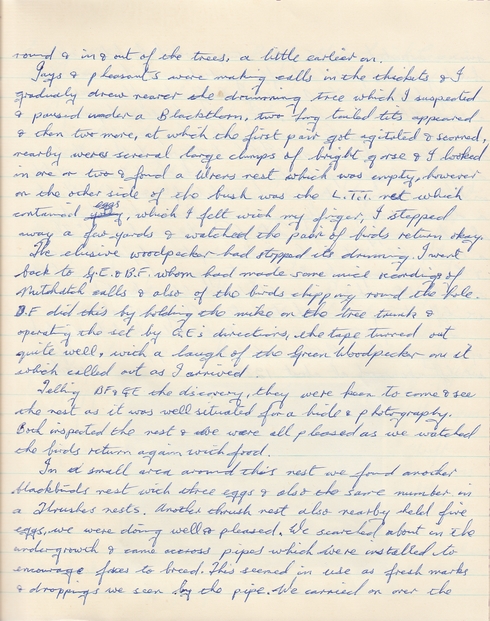 round & in & out of the trees, a little earlier on.
Jays & pheasants were making calls in the thickets & I
gradualy drew nearer the drumming tree which I suspected
& paused under a Blackthorn, two long tailed tits appeared
& then two more, at which the first pair got agitated & scorned,
nearby weres several large clumps of bright gorse & I looked
in one or two & found a Wrens nest which was empty, however
on the other side of the bush was the L.T.T. net which
contained eggs, which I felt with my finger, I stepped
away a few yards & watched the pair of birds return okay.
The elusive woodpecker had stopped its drumming. I went
back to G.E. & B.F. whom had made some nice recordings of
Nuthatch calls & also of the birds chipping round the hole.
B.F did this by holding the mike on the tree trunk &
operating the set by G.E's directions, the tape turned out
quite well, with a laugh of the Green Woodpecker on it
which called out as I arrived.
Telling BF & GE the discovery, they were keen to come & see
the nest as it was well situated for a hide & photography.
Both inspected the nest & we were all pleased as we watched
the birds return again with food.
In a small area around this nest we found another
blackbirds nest with three eggs & also the same number in
a Thrushes nests. Another thrush nest also nearby held five
eggs, we were doing well & pleased. We searched about in the
undergrowth & came across pipes which were installed to
encourage foxes to breed. This seemed in use as fresh marks
& droppings we seen by the pipe. We carried on over the